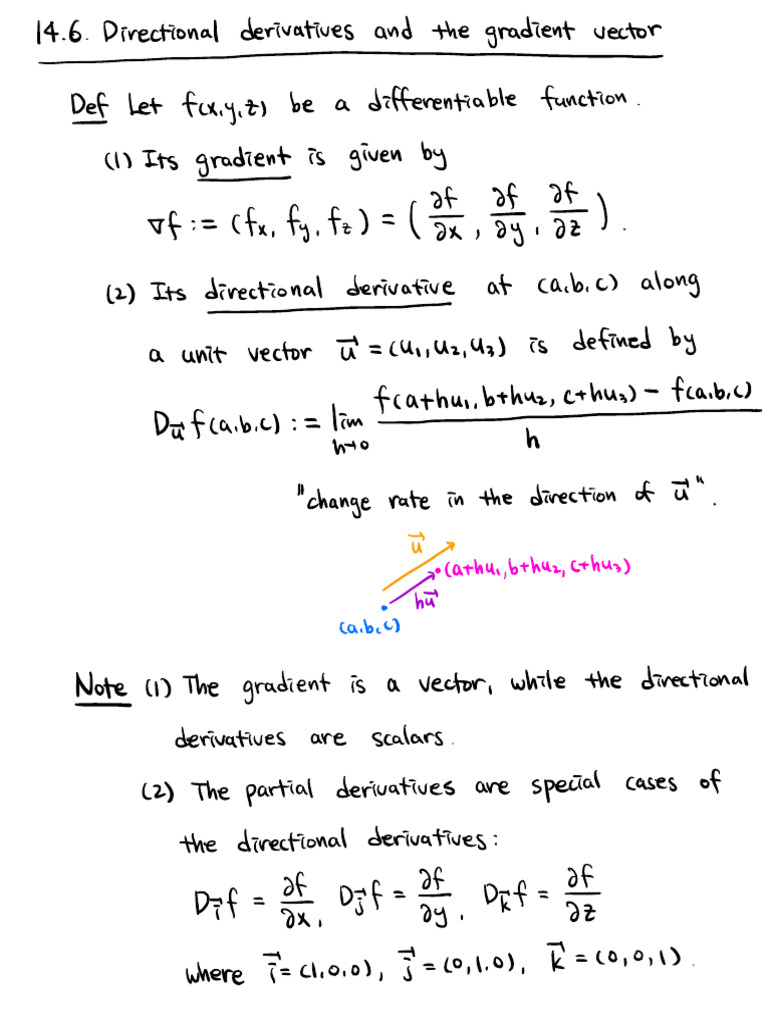 14.6. Directional derivatives and the gradient vector
Def Let f(x,y,z) be a differentiable function.
(1) Its gradient is given by
∇f := (fₓ, f_y, f_z) = (∂f/∂x, ∂f/∂y, ∂f/∂z).
(2) Its directional derivative at (a,b,c) along
a unit vector u⃗ = (u₁,u₂,u₃) is defined by
D_u⃗ f(a,b,c) := lim_{h→0} (f(a+hu₁, b+hu₂, c+hu₃) − f(a,b,c)) / h
"change rate in the direction of u⃗".
u⃗
(a+hu₁, b+hu₂, c+hu₃)
hu⃗
(a,b,c)
Note (1) The gradient is a vector, while the directional
derivatives are scalars.
(2) The partial derivatives are special cases of
the directional derivatives:
D_i⃗ f = ∂f/∂x, D_j⃗ f = ∂f/∂y, D_k⃗ f = ∂f/∂z
where i⃗ = (1,0,0), j⃗ = (0,1,0), k⃗ = (0,0,1).